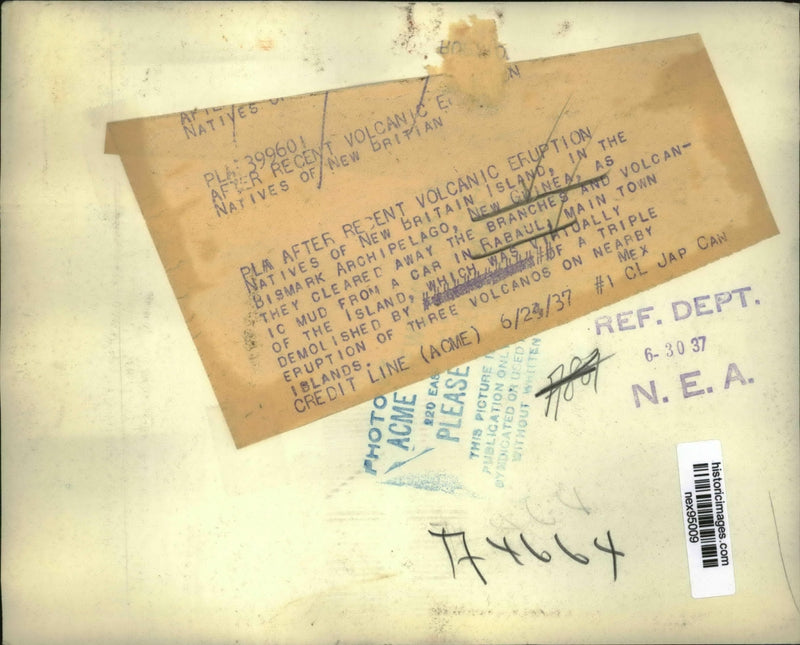 NATIVES
PLA 399601
AFTER RECENT VOLCANIC
NATIVES OF NEW BRITIAN
PLA AFTER RECENT VOLCANIC ERUPTION
NATIVES OF NEW BRITAIN ISLAND, IN THE
BISMARK ARCHIPELAGO, NEW GUINEA, AS
THEY CLEARED AWAY THE BRANCHES AND VOLCAN-
IC MUD FROM A CAR IN RABAUL, MAIN TOWN
OF THE ISLAND, WHICH WAS VIRTUALLY
DEMOLISHED BY OF A TRIPLE
ERUPTION OF THREE VOLCANOS ON NEARBY
ISLANDS. MEX
CREDIT LINE (ACME) 6/23/37 #1 CL JAP CAN
REF. DEPT.
6-30 37
N. E. A.
PHOTO
ACME
220 EAS
PLEASE
THIS PICTURE
PUBLICATION ONL
SYNDICATED OR USED
WITHOUT WRITTEN
historicimages.com
nex95009